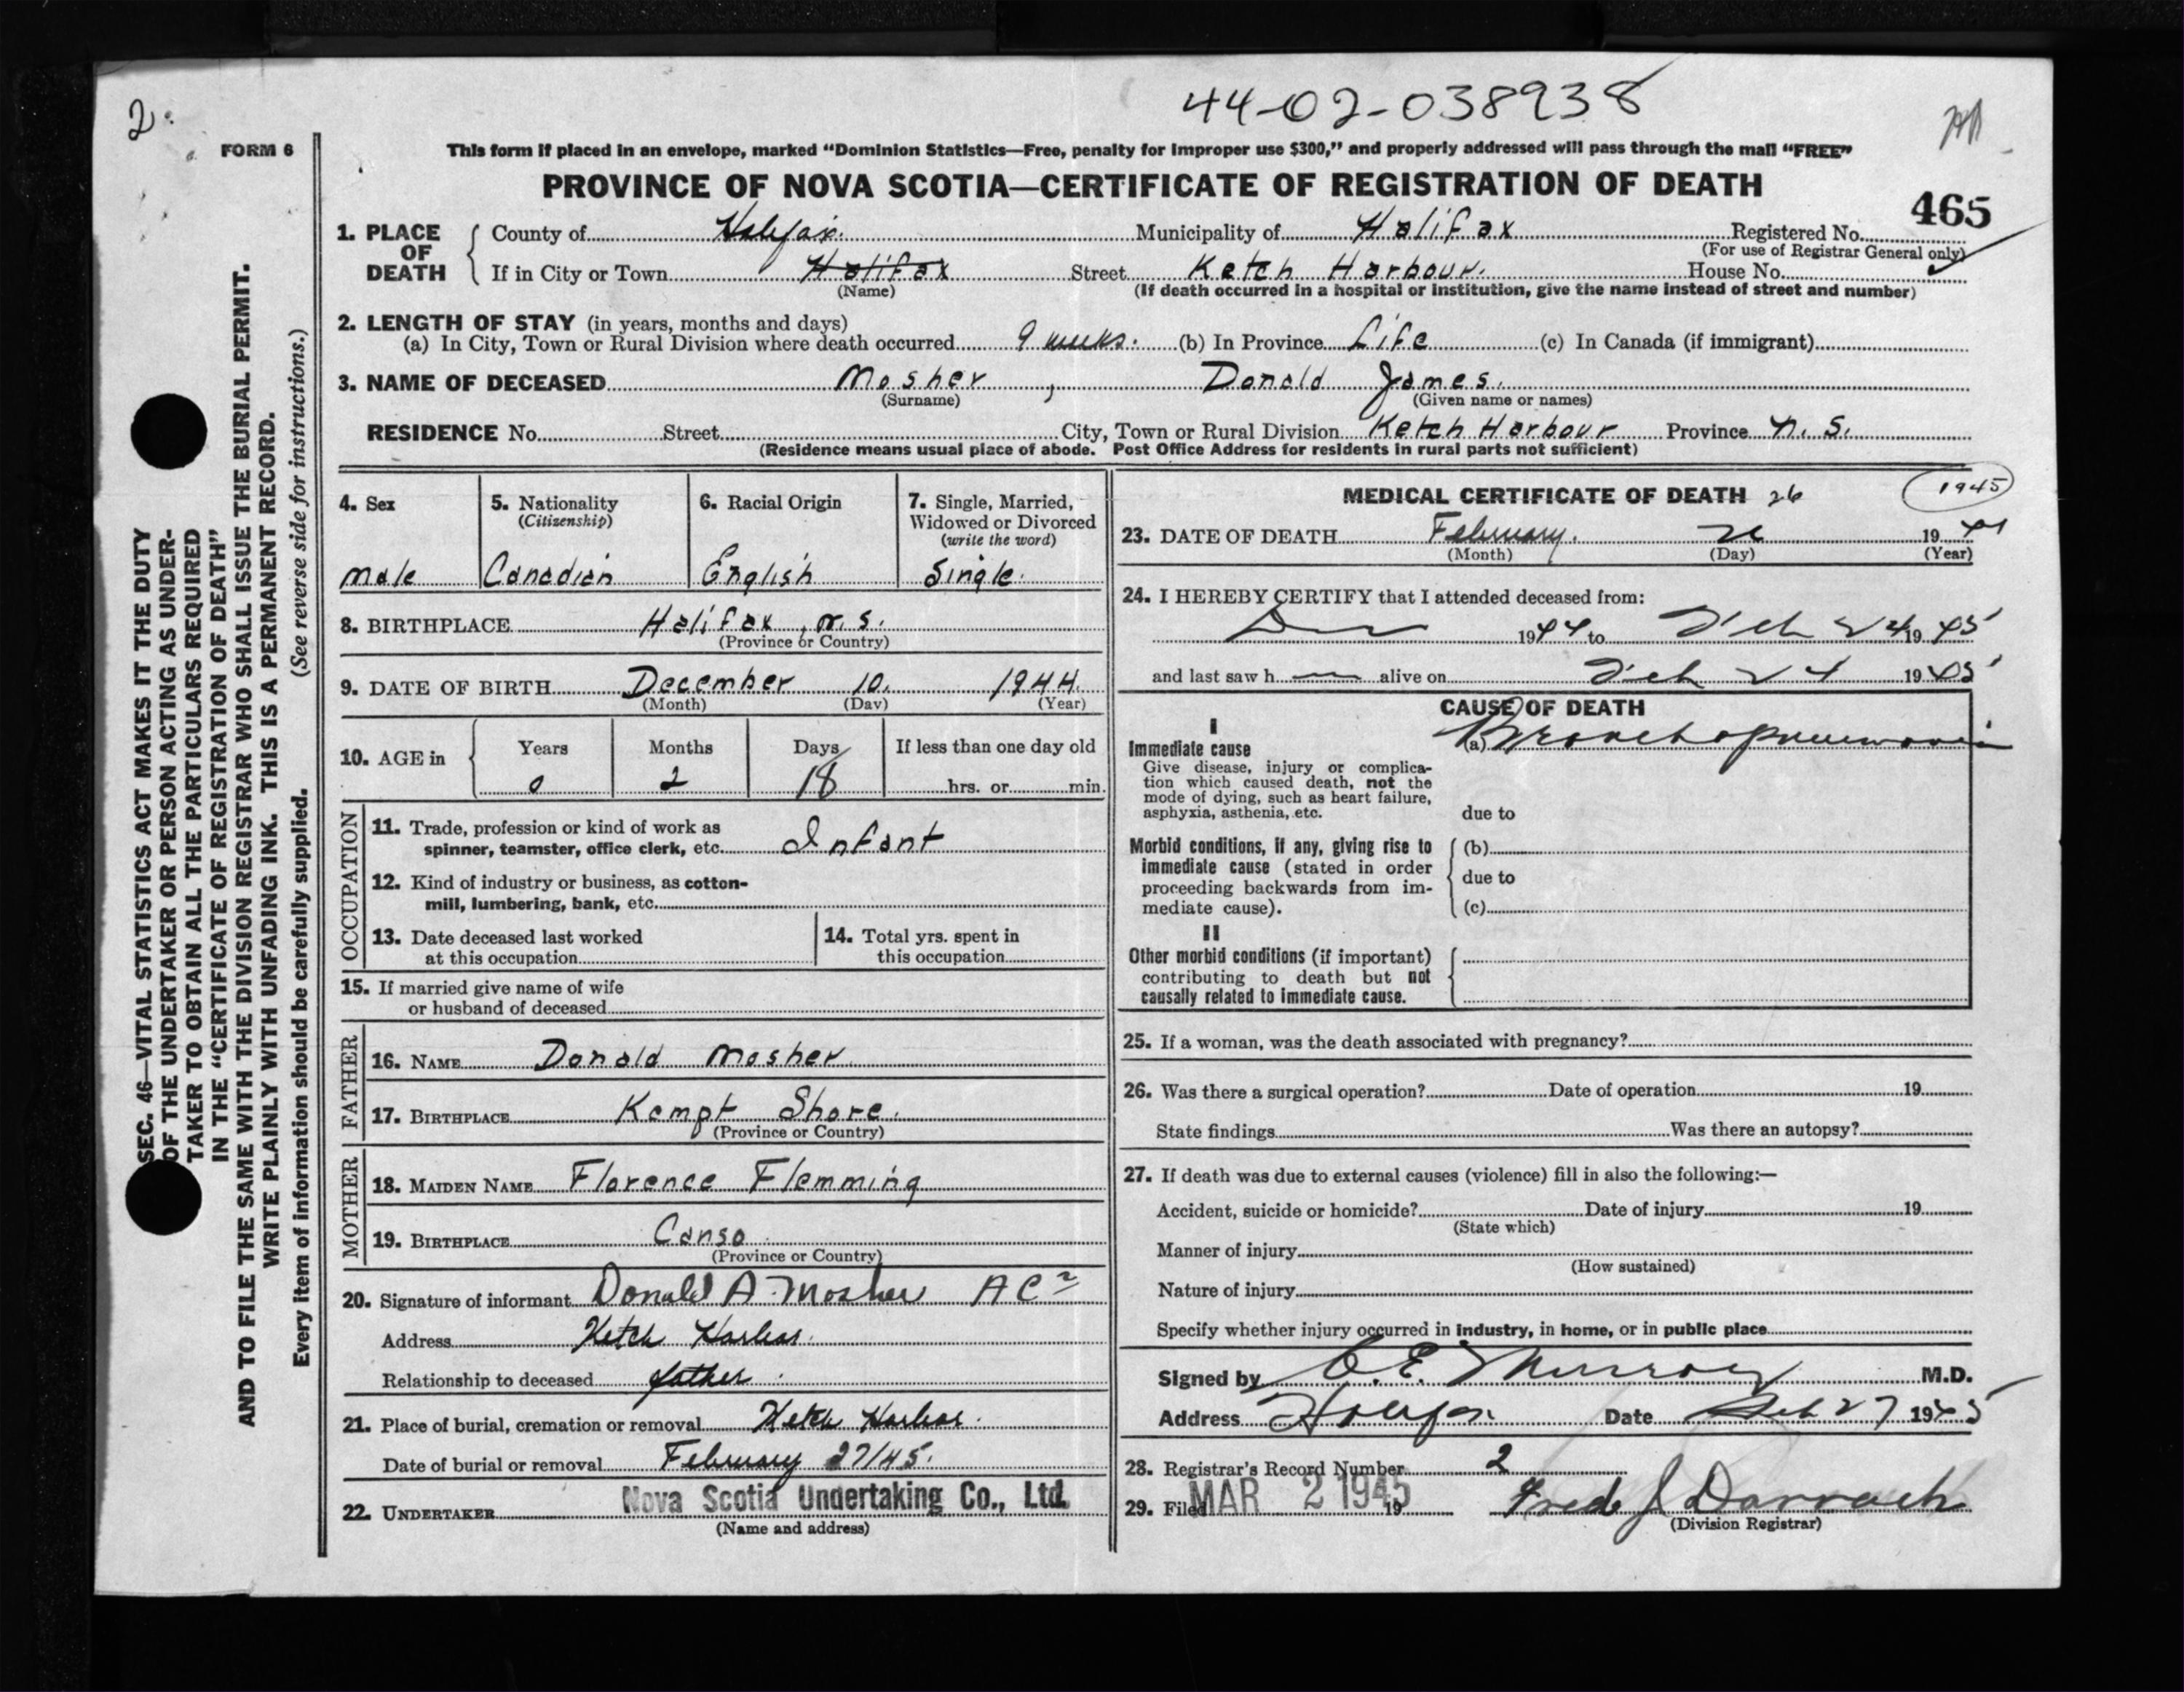 44-02-038938
2
FORM 6
This form if placed in an envelope, marked “Dominion Statistics—Free, penalty for improper use $300,” and properly addressed will pass through the mail “FREE”
PROVINCE OF NOVA SCOTIA—CERTIFICATE OF REGISTRATION OF DEATH
465
1. PLACE OF DEATH
County of Halifax. Municipality of Halifax Registered No.
(For use of Registrar General only)
If in City or Town Halifax Street Ketch Harbour. House No.
(Name) (If death occurred in a hospital or institution, give the name instead of street and number)
2. LENGTH OF STAY (in years, months and days)
(a) In City, Town or Rural Division where death occurred 9 weeks. (b) In Province Life (c) In Canada (if immigrant)
3. NAME OF DECEASED Mosher, Donald James.
(Surname) (Given name or names)
RESIDENCE No. Street City, Town or Rural Division Ketch Harbour Province N. S.
(Residence means usual place of abode. Post Office Address for residents in rural parts not sufficient)
4. Sex
male
5. Nationality
(Citizenship)
Canadian
6. Racial Origin
English
7. Single, Married,
Widowed or Divorced
(write the word)
Single.
8. BIRTHPLACE Halifax, N.S.
(Province or Country)
9. DATE OF BIRTH December 10. 1944.
(Month) (Day) (Year)
10. AGE in
Years Months Days If less than one day old
0 2 18 hrs. or min.
OCCUPATION
11. Trade, profession or kind of work as
spinner, teamster, office clerk, etc. Infant
12. Kind of industry or business, as cotton-
mill, lumbering, bank, etc.
13. Date deceased last worked
at this occupation
14. Total yrs. spent in
this occupation
15. If married give name of wife
or husband of deceased
FATHER
16. NAME Donald Mosher
17. BIRTHPLACE Kempt Shore.
(Province or Country)
MOTHER
18. MAIDEN NAME Florence Flemming
19. BIRTHPLACE Canso
(Province or Country)
20. Signature of informant Donald A. Mosher AC2
Address Ketch Harbor.
Relationship to deceased father.
21. Place of burial, cremation or removal Ketch Harbor.
Date of burial or removal February 27/45.
22. UNDERTAKER Nova Scotia Undertaking Co., Ltd.
(Name and address)
MEDICAL CERTIFICATE OF DEATH 26
1945
23. DATE OF DEATH February. 26 1944
(Month) (Day) (Year)
24. I HEREBY CERTIFY that I attended deceased from:
Dec 1944 to Feb 24 1945
and last saw h alive on Feb 24 1945
CAUSE OF DEATH
I
Immediate cause
(a) Bronchopneumonia
Give disease, injury or complica-
tion which caused death, not the
mode of dying, such as heart failure,
asphyxia, asthenia, etc.
due to
Morbid conditions, if any, giving rise to
immediate cause (stated in order
proceeding backwards from im-
mediate cause).
(b)
due to
(c)
II
Other morbid conditions (if important)
contributing to death but not
causally related to immediate cause.
25. If a woman, was the death associated with pregnancy?
26. Was there a surgical operation? Date of operation 19
State findings Was there an autopsy?
27. If death was due to external causes (violence) fill in also the following:—
Accident, suicide or homicide? Date of injury 19
(State which)
Manner of injury
(How sustained)
Nature of injury
Specify whether injury occurred in industry, in home, or in public place
Signed by C.E. Murray M.D.
Address Halifax Date Feb 27 1945
28. Registrar's Record Number 2
29. Filed MAR 2 1945 19 Fred J Darrach
(Division Registrar)
SEC. 46—VITAL STATISTICS ACT MAKES IT THE DUTY
OF THE UNDERTAKER OR PERSON ACTING AS UNDER-
TAKER TO OBTAIN ALL THE PARTICULARS REQUIRED
IN THE “CERTIFICATE OF REGISTRATION OF DEATH”
AND TO FILE THE SAME WITH THE DIVISION REGISTRAR WHO SHALL ISSUE THE BURIAL PERMIT.
WRITE PLAINLY WITH UNFADING INK. THIS IS A PERMANENT RECORD.
Every item of information should be carefully supplied. (See reverse side for instructions.)